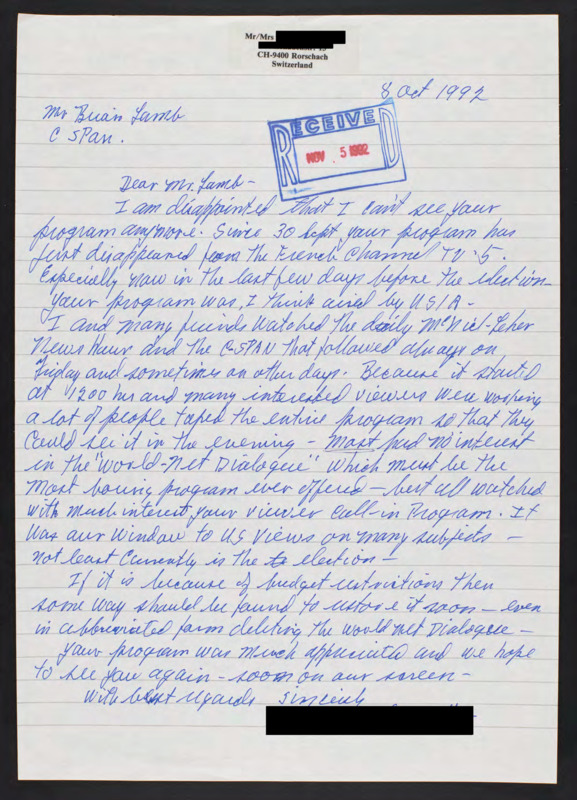 Mr/Mrs
CH-9400 Rorschach
Switzerland
8 Oct 1992
Mr Brian Lamb
C SPAN.
RECEIVED
NOV. 5 1992
Dear Mr. Lamb-
I am disappointed that I can't see your
program anymore. Since 30 Sept your program has
first disappeared from the French Channel TV-5.
Especially now in the last few days before the election-
Your program was, I think aired by USIA-
I and many friends watched the daily McNiel-Leher
News Hour and the C-SPAN that followed always on
Friday and sometimes on other days. Because it started
at 1200 hrs and many interested viewers were working
a lot of people taped the entire program so that they
could see it in the evening - Most had no interest
in the "World-Net Dialogue" which must be the
most boring program ever offered - but all watched
with much interest your viewer call-in Program. It
was our window to US Views on many subjects -
not least currently is the election -
If it is because of budget restrictions then
some way should be found to restore it soon - even
in abbreviated form deleting the World Net Dialogue -
Your program was much appreciated and we hope
to see you again - soon on our screen -
With best regards Sincerely